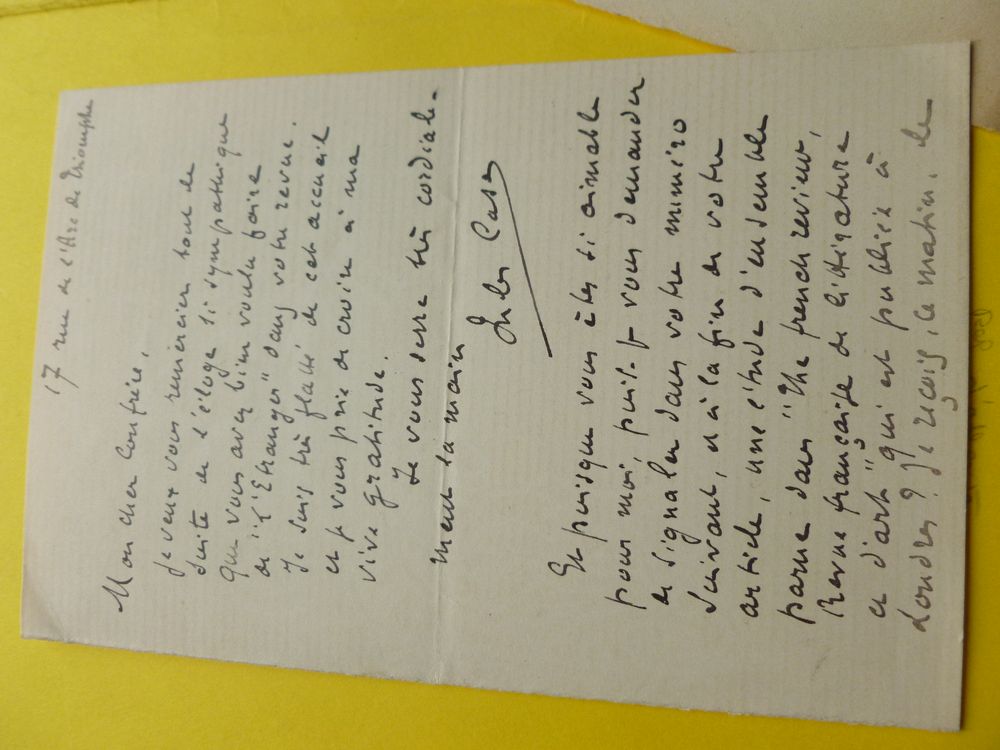 17 rue de l'Arc de Triomphe
Mon cher Confrère,
Je veux vous remercier tout de
suite de l'éloge si sympathique
que vous avez bien voulu faire
de "l'Etranger" dans votre revue.
Je suis très flatté de cet accueil
et je vous prie de croire à ma
vive gratitude.
Je vous serre très cordiale-
ment la main
Jules Case
Et puisque vous êtes si aimable
pour moi, puis-je vous demander
de signaler dans votre numéro
suivant, et à la fin de votre
article, une étude d'ensemble
parue dans "The french review,
Revue française de littérature
et d'art" qui est publiée à
Londres? Je reçois, ce matin, le